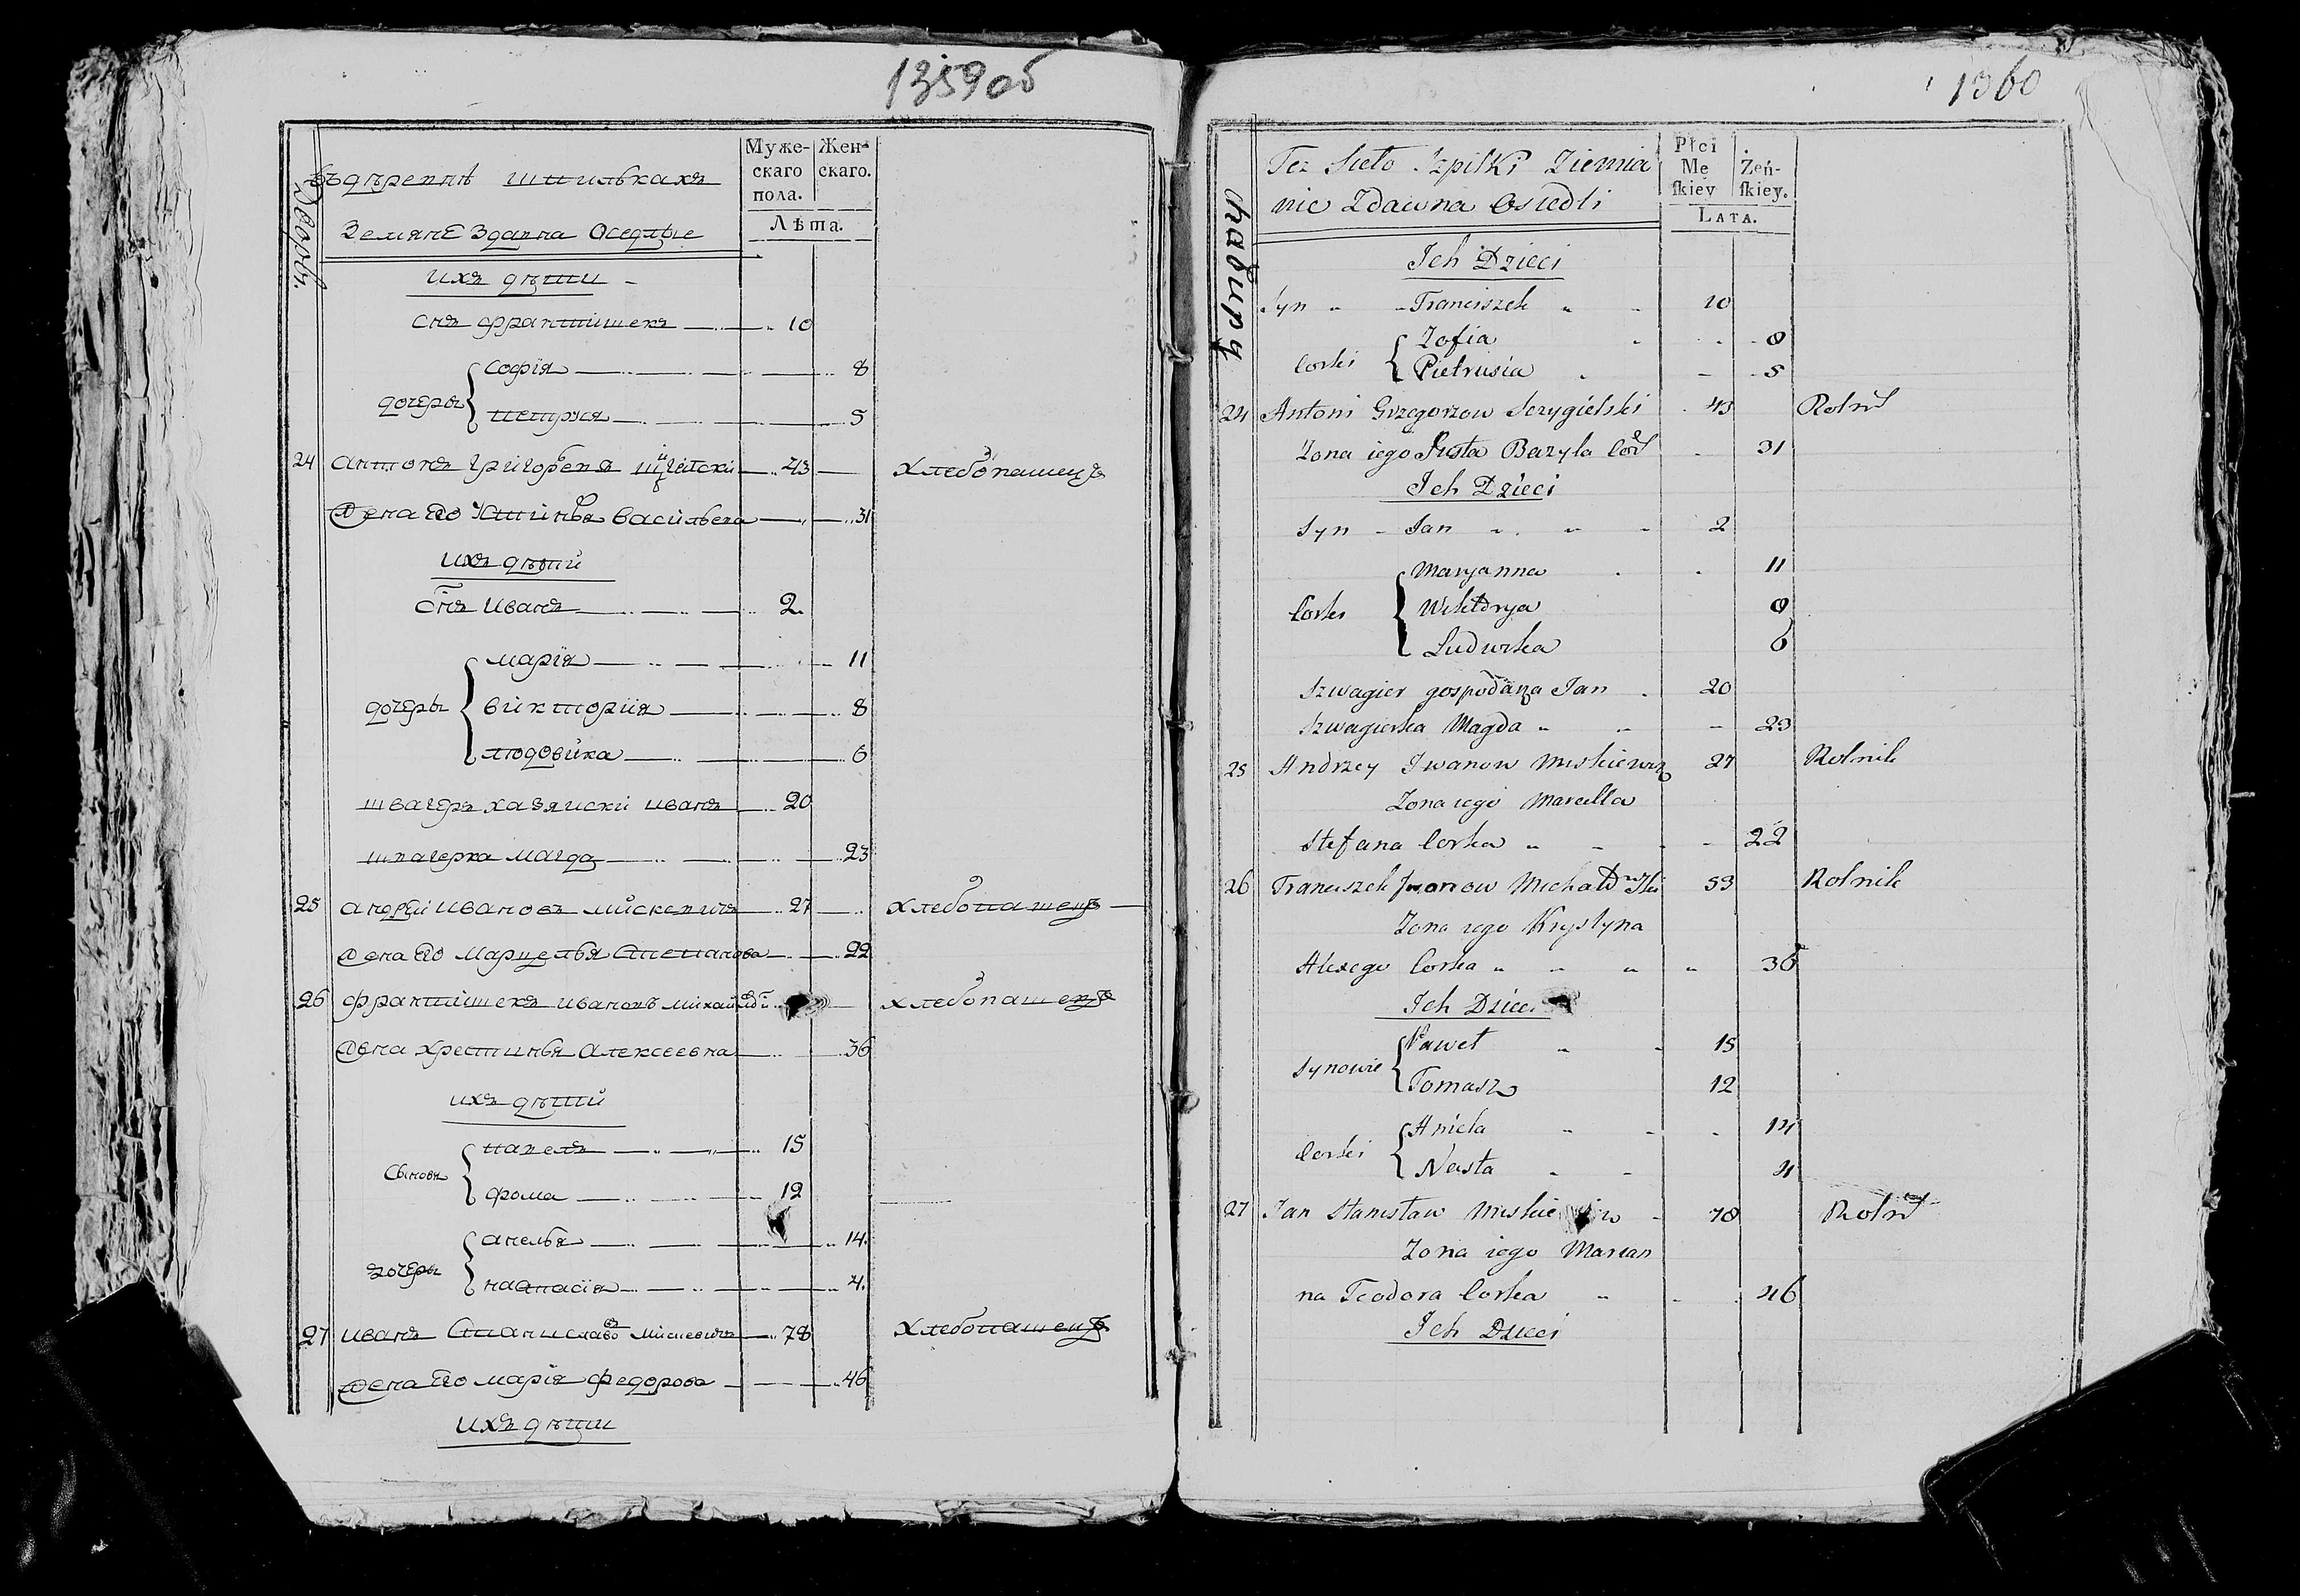 1359об
Дворы.
Въ деревнѣ Шпилькахъ
Земяне Здавна Оседлые
Муже-
скаго
пола.
Жен-
скаго.
Лѣта.
ихъ дѣти
Снъ францишекъ 10
дочеры
София 8
петруся 5
24 антонъ григорьевъ 43 Хлебопашецъ
Жена его Юстинья Васильева 31
ихъ дѣти
Снъ иванъ 2.
дочеры
мария 11
виктория 8
людовика 6
швагеръ хазяйски иванъ 20
швагерка магда 23
25 андрей ивановъ мискевичъ 27 Хлебопашецъ
Жена его Марцелья Степанова 22
26 францишекъ ивановъ Хлебопашецъ
Жена Христинья Алексеевна 36
ихъ дѣти
Сыновя
павелъ 15
фома 12
дочеры
анелья 14.
настасия 4.
27 иванъ Станиславо мискевичъ 78 Хлебопашецъ
Жена его мария федорова 46
ихъ дѣти
1360
chałupy
Teź Sieło Szpilki Ziemia
nie Zdawna Osiedli
Płci
Mę
ſkiey
Żeń-
ſkiey.
Lata.
Ich Dzieci
Syn Franciszek 10
Corki
Zofia 8
Pietrusia 5
24 Antoni Grzegorzow Sczygielski 43 Rolnik
Zona iego Justa Bazyla Cor 31
Ich Dzieci
Syn Jan 2
Corki
Maryanna 11
Wiktorya 8
Ludwika 6
Szwagier gospodarza Jan 20
Szwagierka Magda 23
25 Andrzey Iwanow Miskiewicz 27 Rolnik
Zona iego Marcella
Stefana Corka 22
26 Franciszek Iwanow Michałowski 53 Rolnik
Zona iego Krystyna
Alexego Corka 36
Ich Dzieci
Synowie
Paweł 15
Tomasz 12
Corki
Aniela 14
Nasta 4
27 Jan Stanisław 78 Rolnik
Zona iego Marian
na Teodora Corka 46
Ich Dzieci